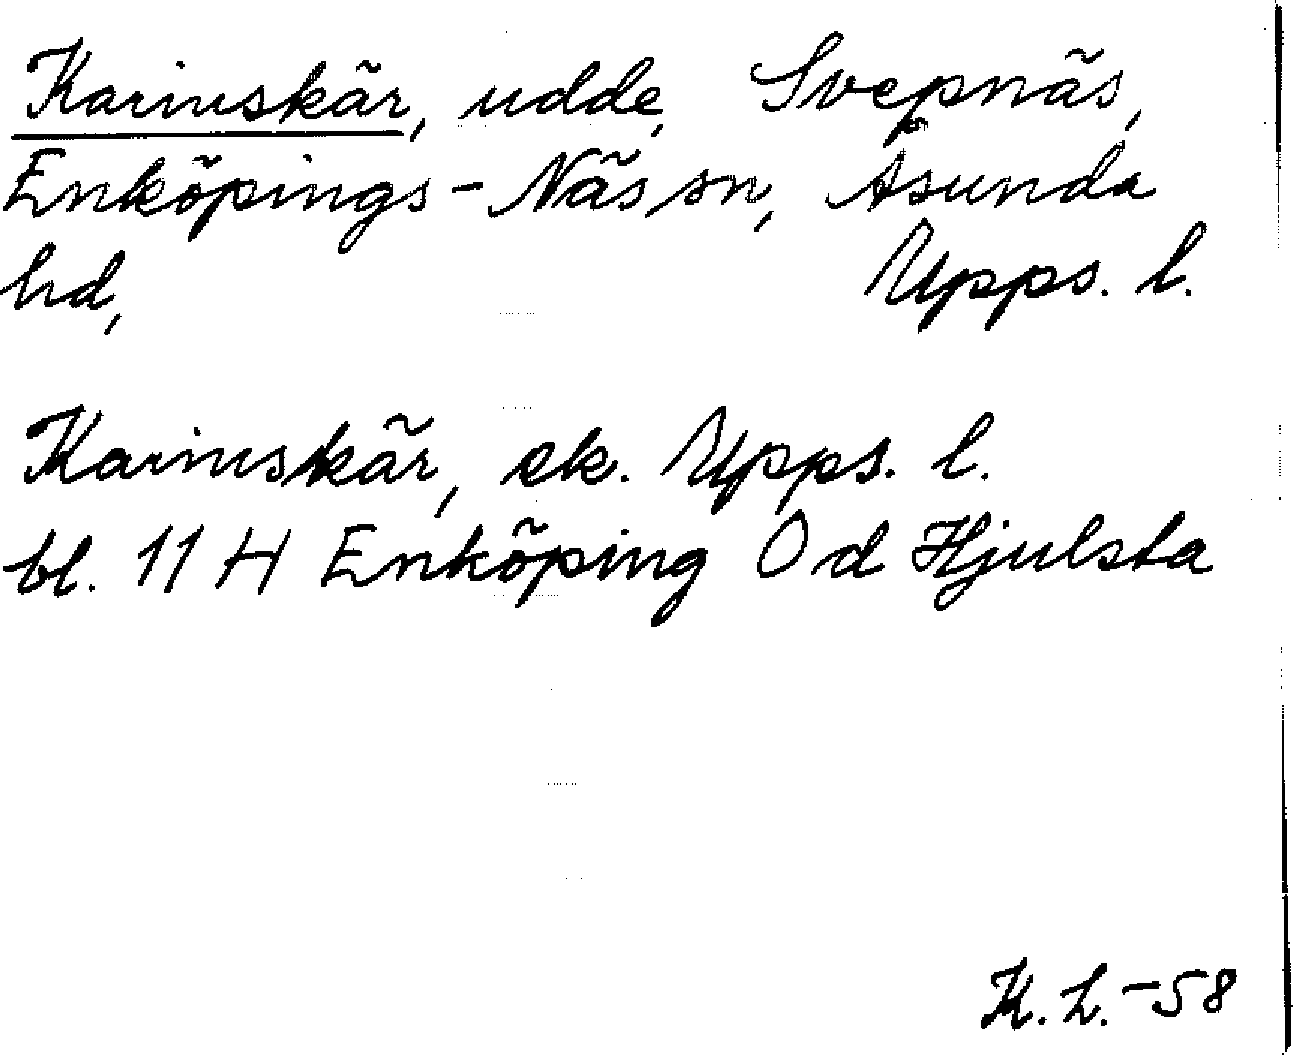 Karinskär, udde, Svepnäs,
Enköpings-Näs sn, Åsunda
hd, Upps. l.
Karinskär, ek. Upps. l.
bl. 11 H Enköping Od Hjulsta
K. L. -58